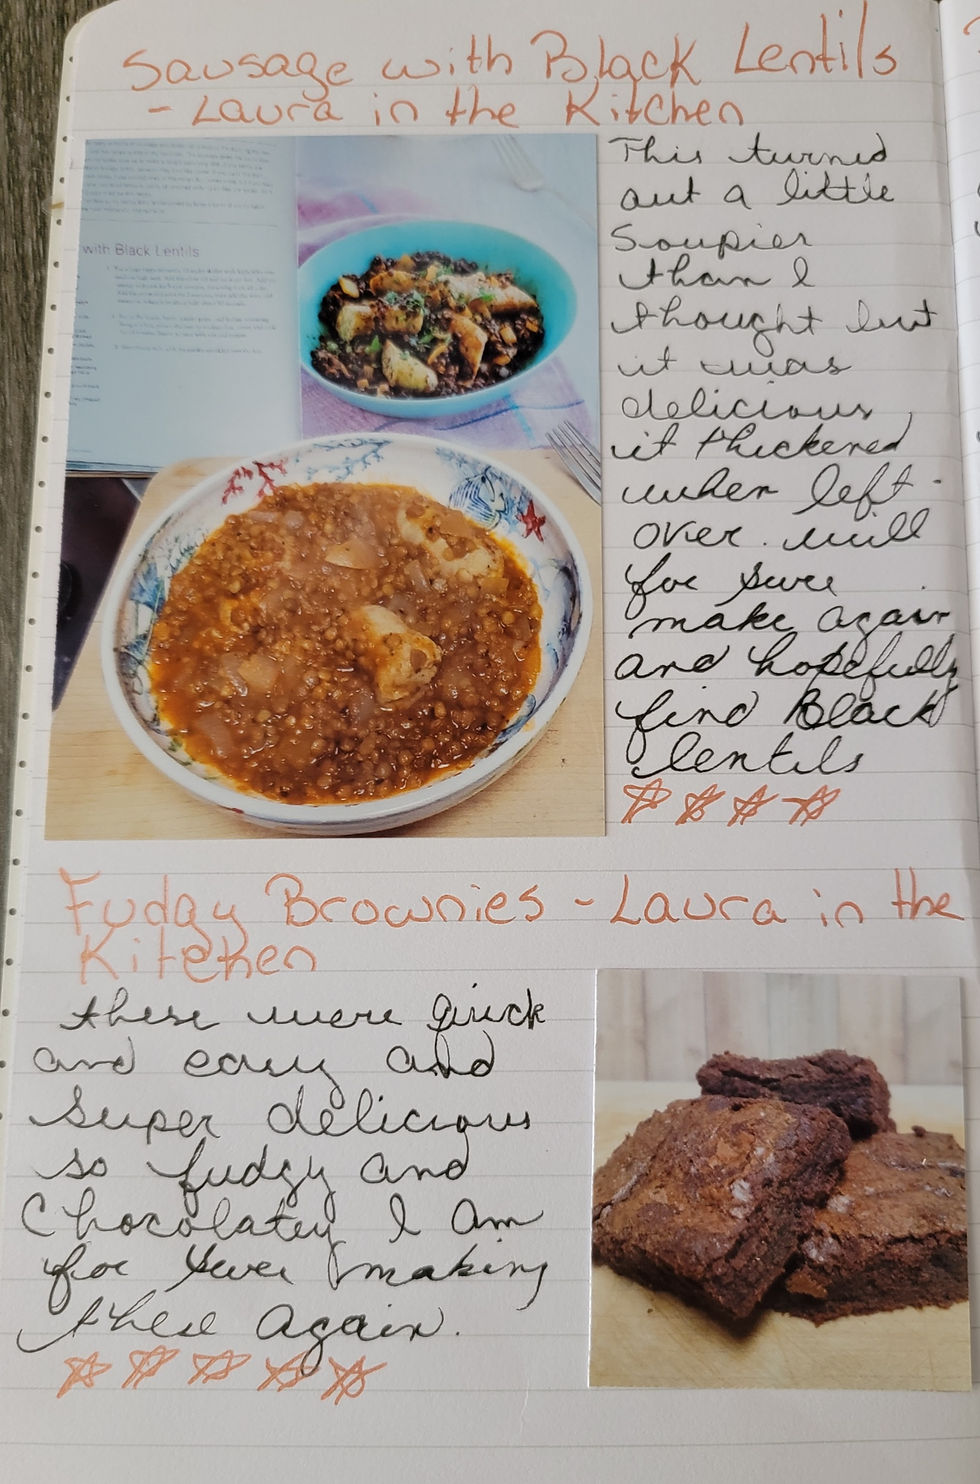 Sausage with Black Lentils
- Laura in the Kitchen
with Black Lentils
This turned
out a little
Soupier
than I
thought but
it was
delicious,
it thickened
when left-
over. will
for sure
make again
and hopefully
find Black
lentils
Fudgy Brownies - Laura in the
Kitchen
these were quick
and easy and
super delicious
so fudgy and
Chocolatey I am
for sure making
these again.